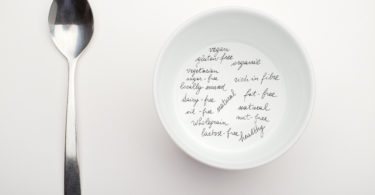 vegan
gluten-free
organic
vegetarian
sugar-free
rich in fibre
locally-sourced
dairy-free
natural
fat-free
oil-free
natural
nut-free
wholegrain
lactose-free
healthy